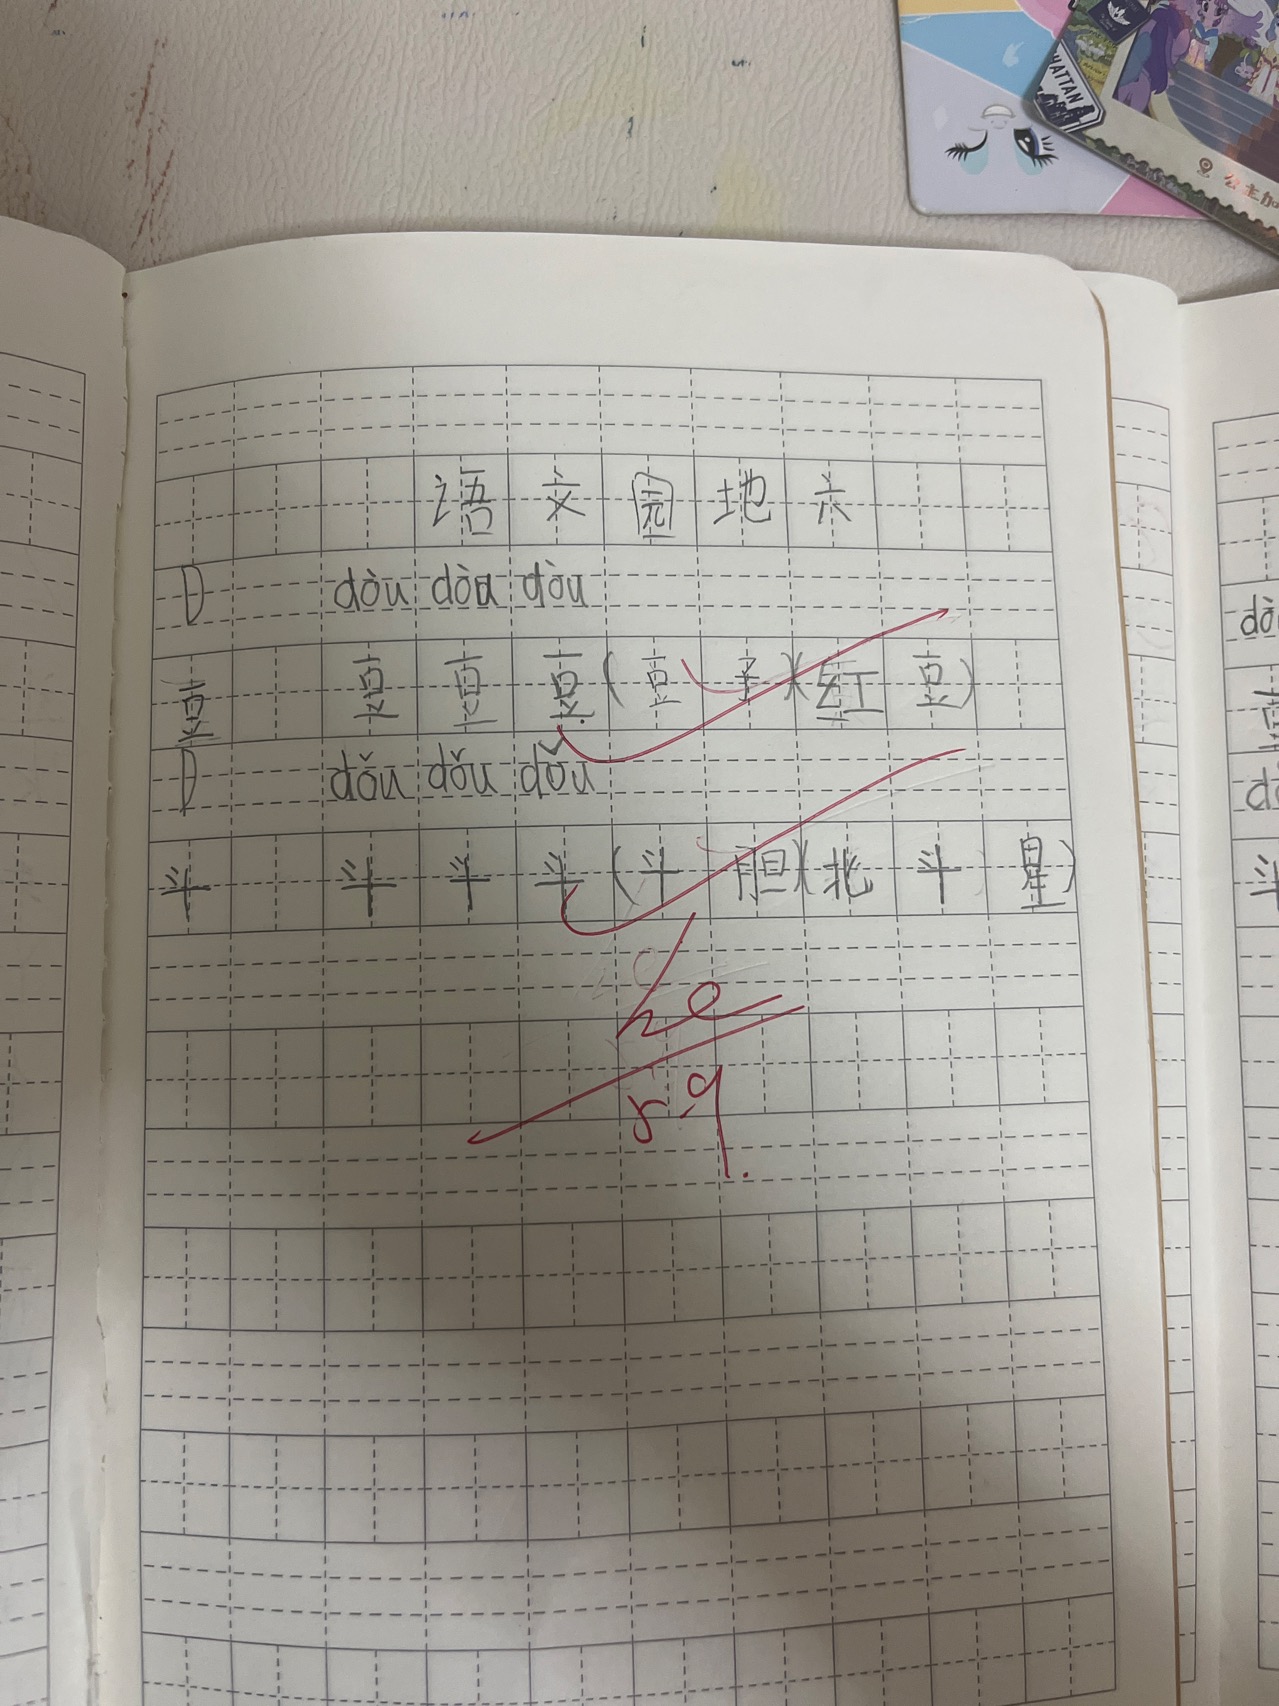 HATTAN
公主加
语文园地六
D dòu dòu dòu
豆 豆豆豆(豆子)(红豆)
D dǒu dǒu dǒu
斗 斗斗斗(斗胆)(北斗星)
5.9.